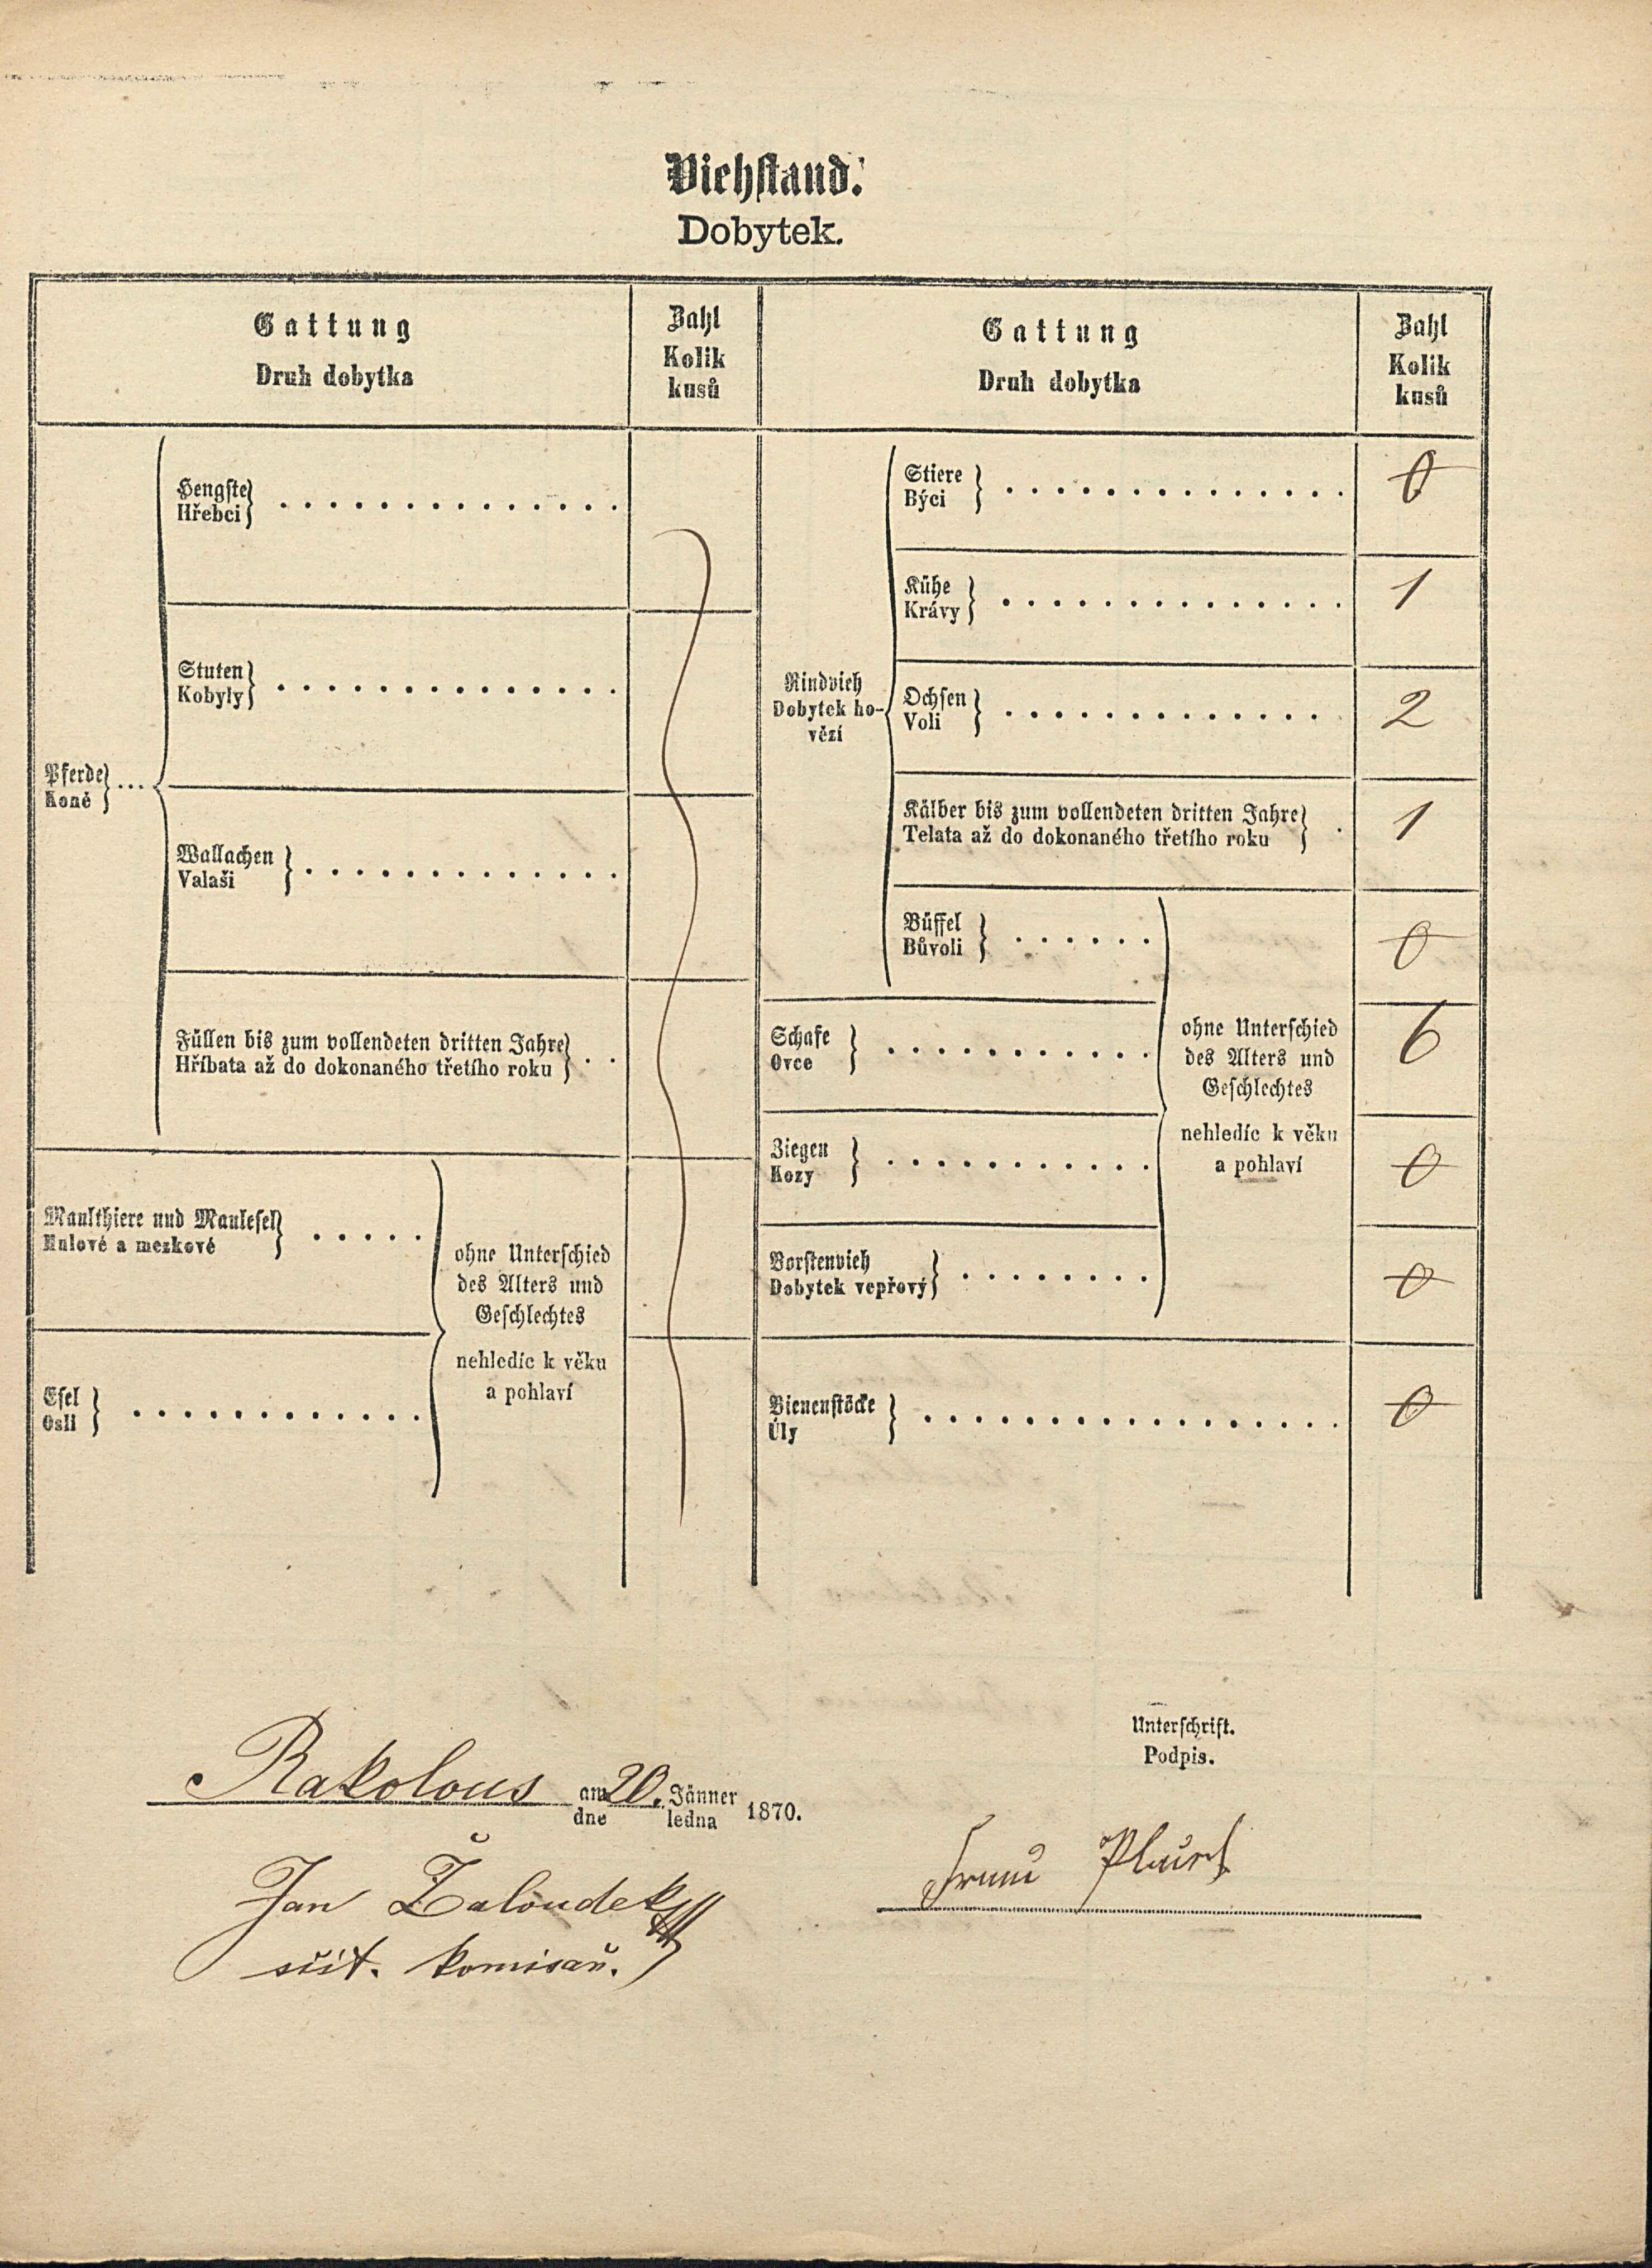 Viehstand.
Dobytek.
Gattung
Druh dobytka
Zahl
Kolik
kusů
Gattung
Druh dobytka
Zahl
Kolik
kusů
Pferde
Koně
Hengste
Hřebci
Stuten
Kobyly
Wallachen
Valaši
Füllen bis zum vollendeten dritten Jahre
Hříbata až do dokonaného třetího roku
Maulthiere und Maulesel
Mulové a mezkové
Esel
Osli
ohne Unterschied
des Alters und
Geschlechtes
nehledíc k věku
a pohlaví
Rindvieh
Dobytek ho-
vězí
Stiere
Býci
0
Kühe
Krávy
1
Ochsen
Voli
2
Kälber bis zum vollendeten dritten Jahre
Telata až do dokonaného třetího roku
1
Büffel
Bůvoli
0
Schafe
Ovce
6
Ziegen
Kozy
0
Borstenvieh
Dobytek vepřový
0
ohne Unterschied
des Alters und
Geschlechtes
nehledíc k věku
a pohlaví
Bienenstöcke
Úly
0
Rakolous am 20. Jänner 1870.
dne ledna
Jan Žaloudek
sčit. komisař.
Unterschrift.
Podpis.